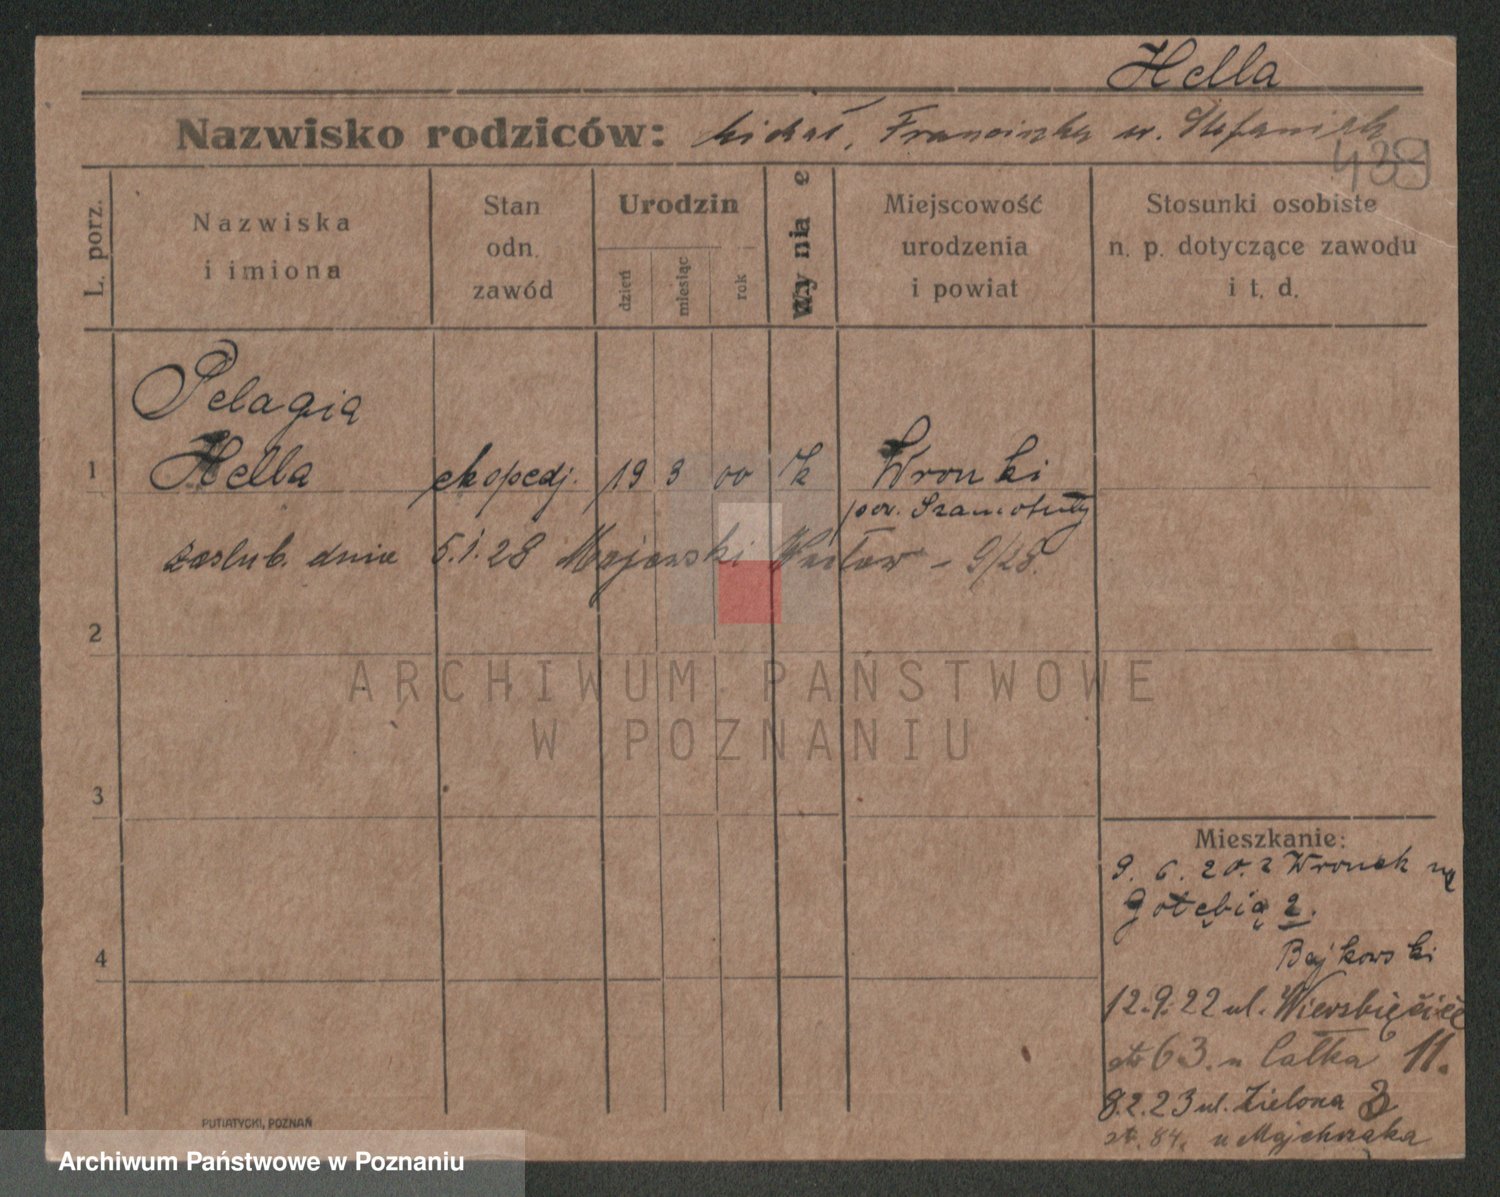 Hella
Nazwisko rodziców: Michał, Franciszka u. Stefaniak
439
L. porz.
Nazwiska
i imiona
Stan
odn.
zawód
Urodzin
dzień
miesiąc
rok
Wyznanie
Miejscowość
urodzenia
i powiat
Stosunki osobiste
n. p. dotyczące zawodu
i t. d.
Pelagia
1 Hella ekspedj. 19 3 00 k Wronki
pow. Szamotuły
zaslub. dnia 5.1.28 Majewski Wacław - 9/28.
2
3
4
Mieszkanie:
9. 6. 20. z Wronek na
Gołębią 2.
Bajkowski
12.9.22 ul. Wierzbięcice
63. u Całka 11.
8.2.23 ul. Zielona 8
84. u Majchrzaka
PUTIATYCKI, POZNAŃ
ARCHIWUM PAŃSTWOWE
W POZNANIU
Archiwum Państwowe w Poznaniu